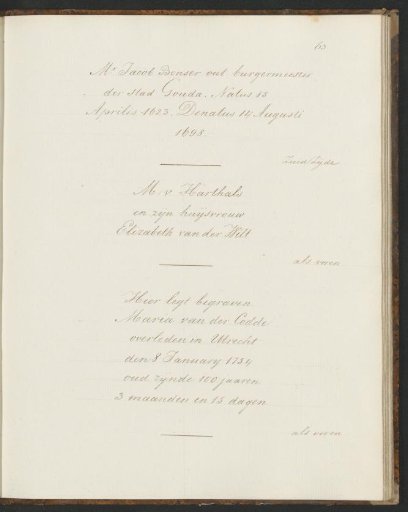 63
Mr Jacob Bonser out burgermeester
der stad Gouda. Natus 13
Aprilis 1623. Denatus 14 Augusti
1698
Zuid Zyde
M. v Harthals
en zyn huysvrouw
Elizabeth van der Wilt
als voren
Hier legt begraven
Maria van der Codde
overleden in Utrecht
den 8 January 1754
oud zynde 100 jaaren
3 maanden en 15 dagen
als voren